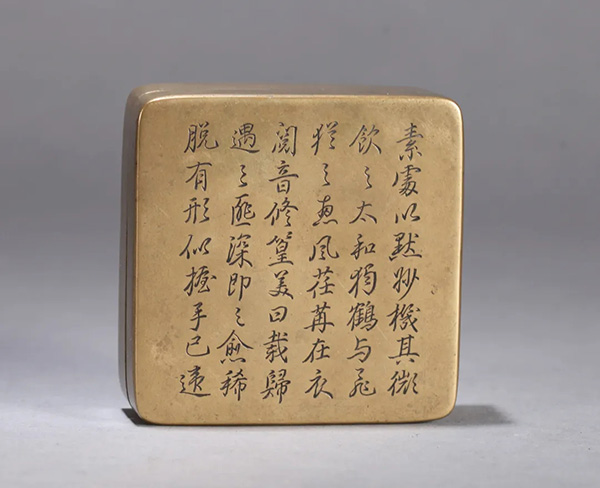 素處以默妙機其微
飲之太和獨鶴与飛
猶之惠風荏苒在衣
閱音修篁美曰載歸
遇之匪深即之愈稀
脫有形似握手已違